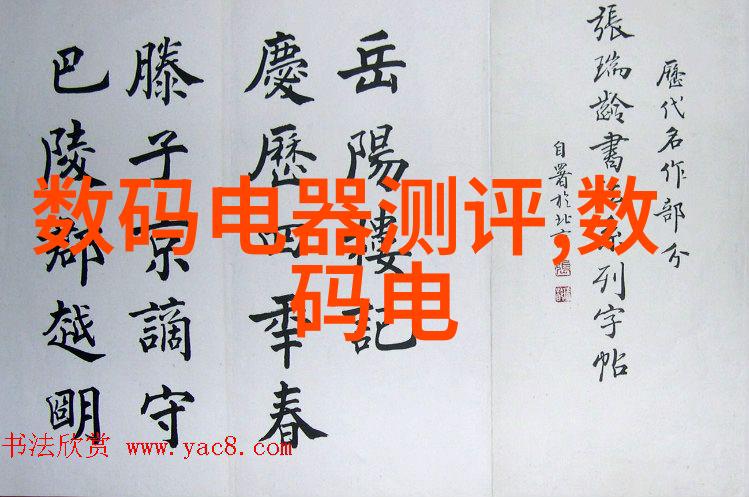 歷代名作部分
張瑞齡書系列字帖
自署於北
岳陽樓記
慶歷四年春
滕子京謫守
巴陵郡越明
数码电器测评,数
码电
书法欣赏 www.yac8.com